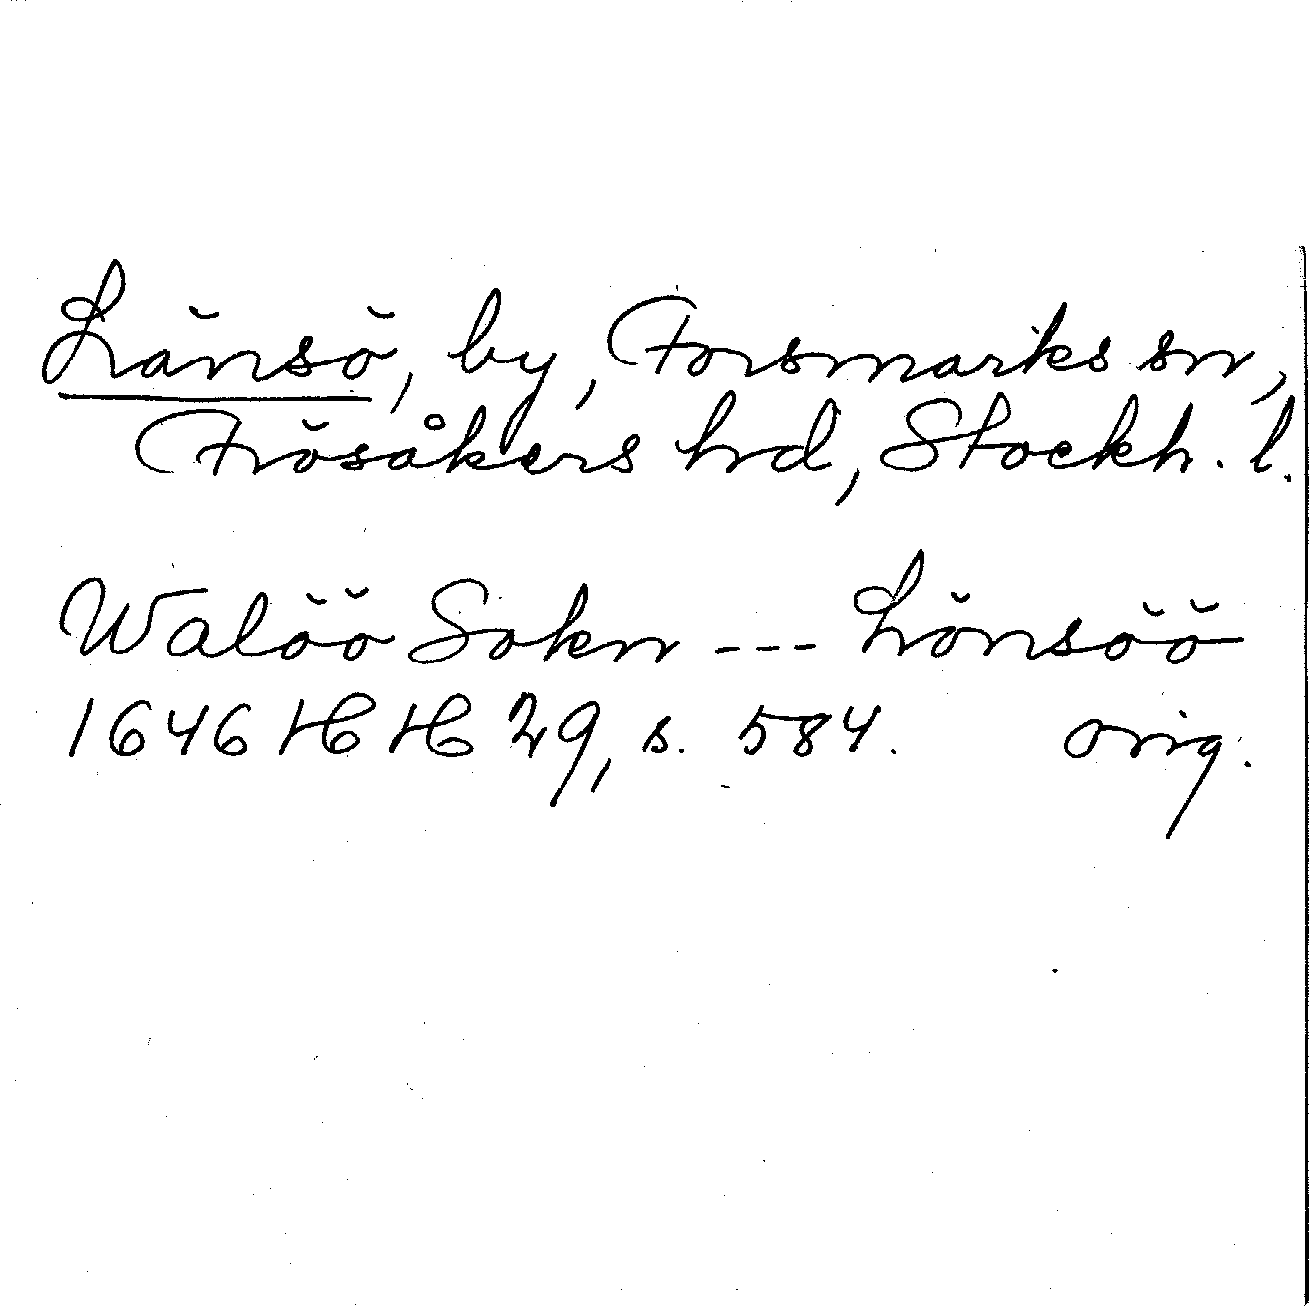 Länsö, by, Forsmarks sn,
Frösåkers hrd, Stockh. l.
Walöö Sokn --- Lönsöö
1646 HH 29, s. 584. orig.